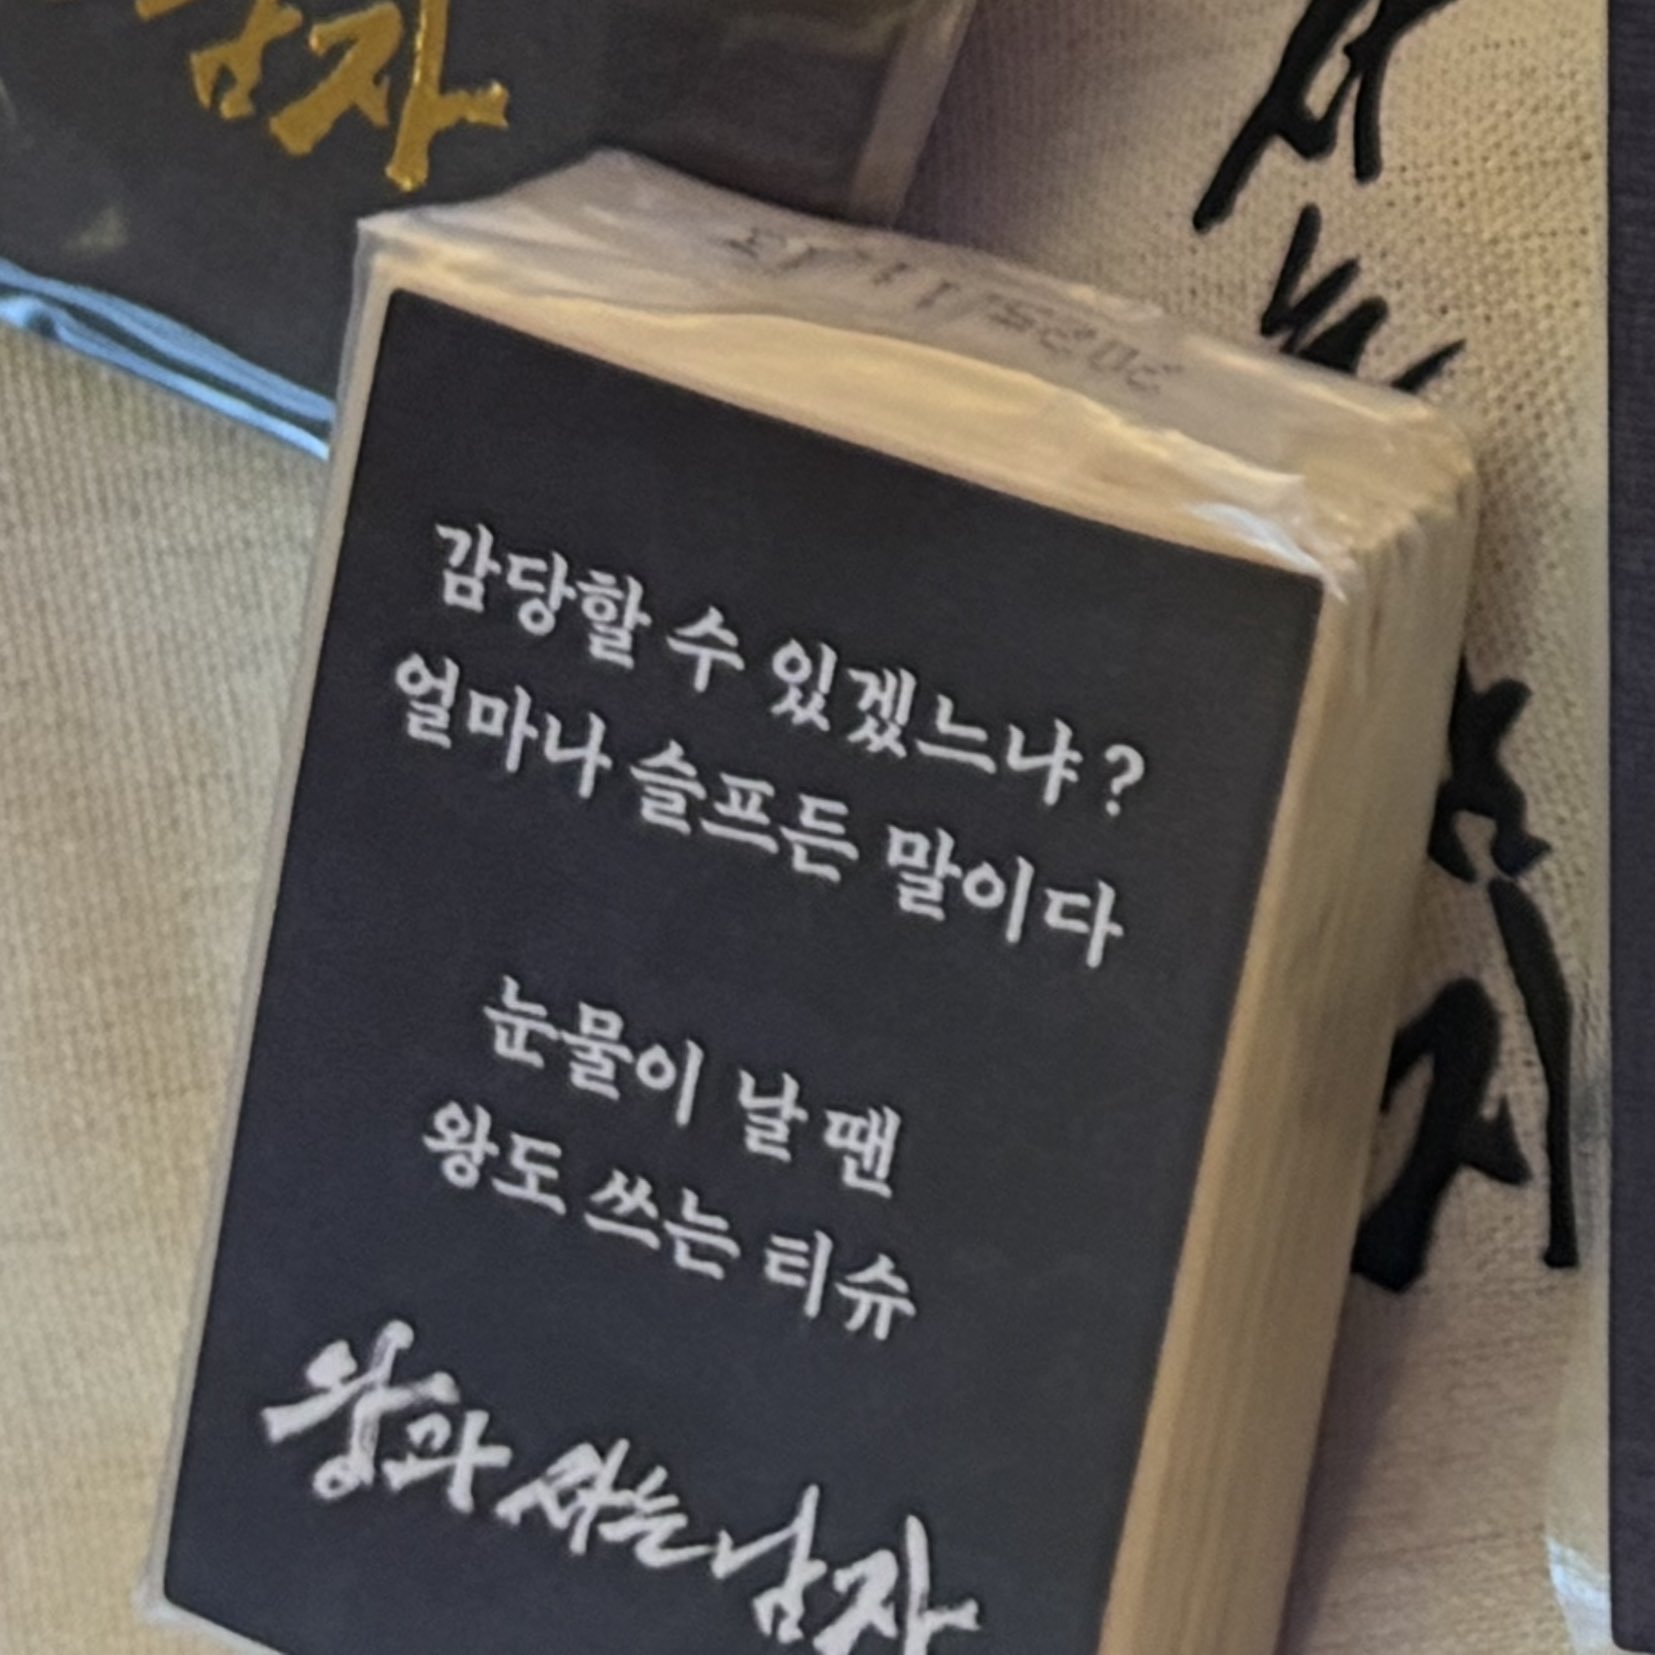 남자
감당할 수 있겠느냐?
얼마나 슬프든 말이다
눈물이 날 땐
왕도 쓰는 티슈
왕과 사는 남자